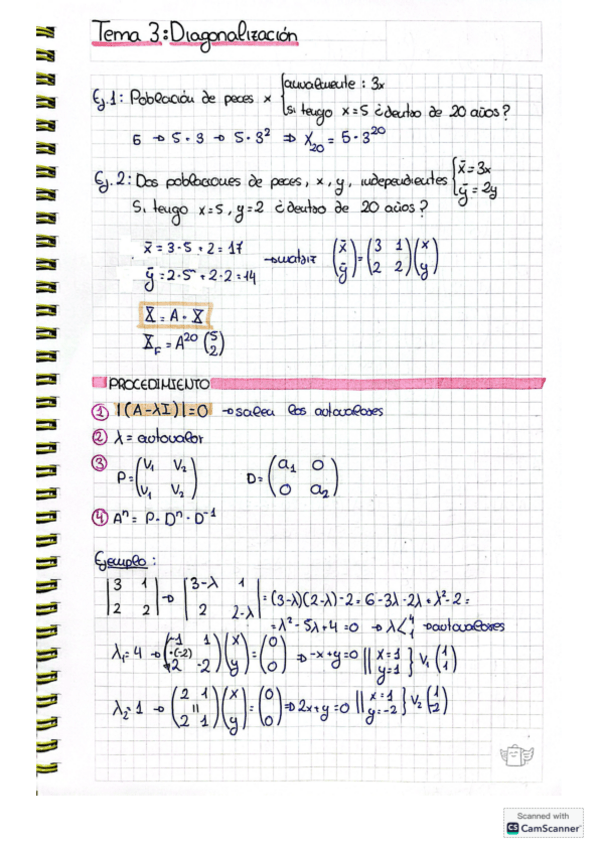 Tema 3: Diagonalización
Ej.1: Población de peces x { anualmente : 3x
si tengo x=5 ¿dentro de 20 años?
5 → 5·3 → 5·3² ⇒ X₂₀ = 5·3²⁰
Ej.2: Dos poblaciones de peces, x, y, independientes { x̄ = 3x
ȳ = 2y
Si tengo x=5, y=2 ¿dentro de 20 años?
x̄ = 3·5 + 2 = 17
ȳ = 2·5 + 2·2 = 14
→ matriz (x̄ ȳ) = (3 1 2 2) (x y)
X̄ = A · X̄
X̄F = A²⁰ (5 2)
PROCEDIMIENTO
① |(A-λI)| = 0 → salen los autovalores
② λ = autovalor
③ P = (V₁ V₂ V₁ V₂) D = (a₁ 0 0 a₂)
④ Aⁿ = P · Dⁿ · D⁻¹
Ejemplo :
|3 1 2 2| → |3-λ 1 2 2-λ| = (3-λ)(2-λ)-2 = 6-3λ-2λ+λ²-2 =
= λ²-5λ+4 = 0 → λ < 4 1 → autovalores
λ₁ = 4 → (-1 1 2 -2) ·(-2) (x y) = (0 0) ⇒ -x+y=0 || x=1 y=1 } V₁ (1 1)
λ₂ = 1 → (2 1 || 2 1) (x y) = (0 0) ⇒ 2x+y=0 || x=1 y=-2 } V₂ (1 -2)
Scanned with
CS CamScanner